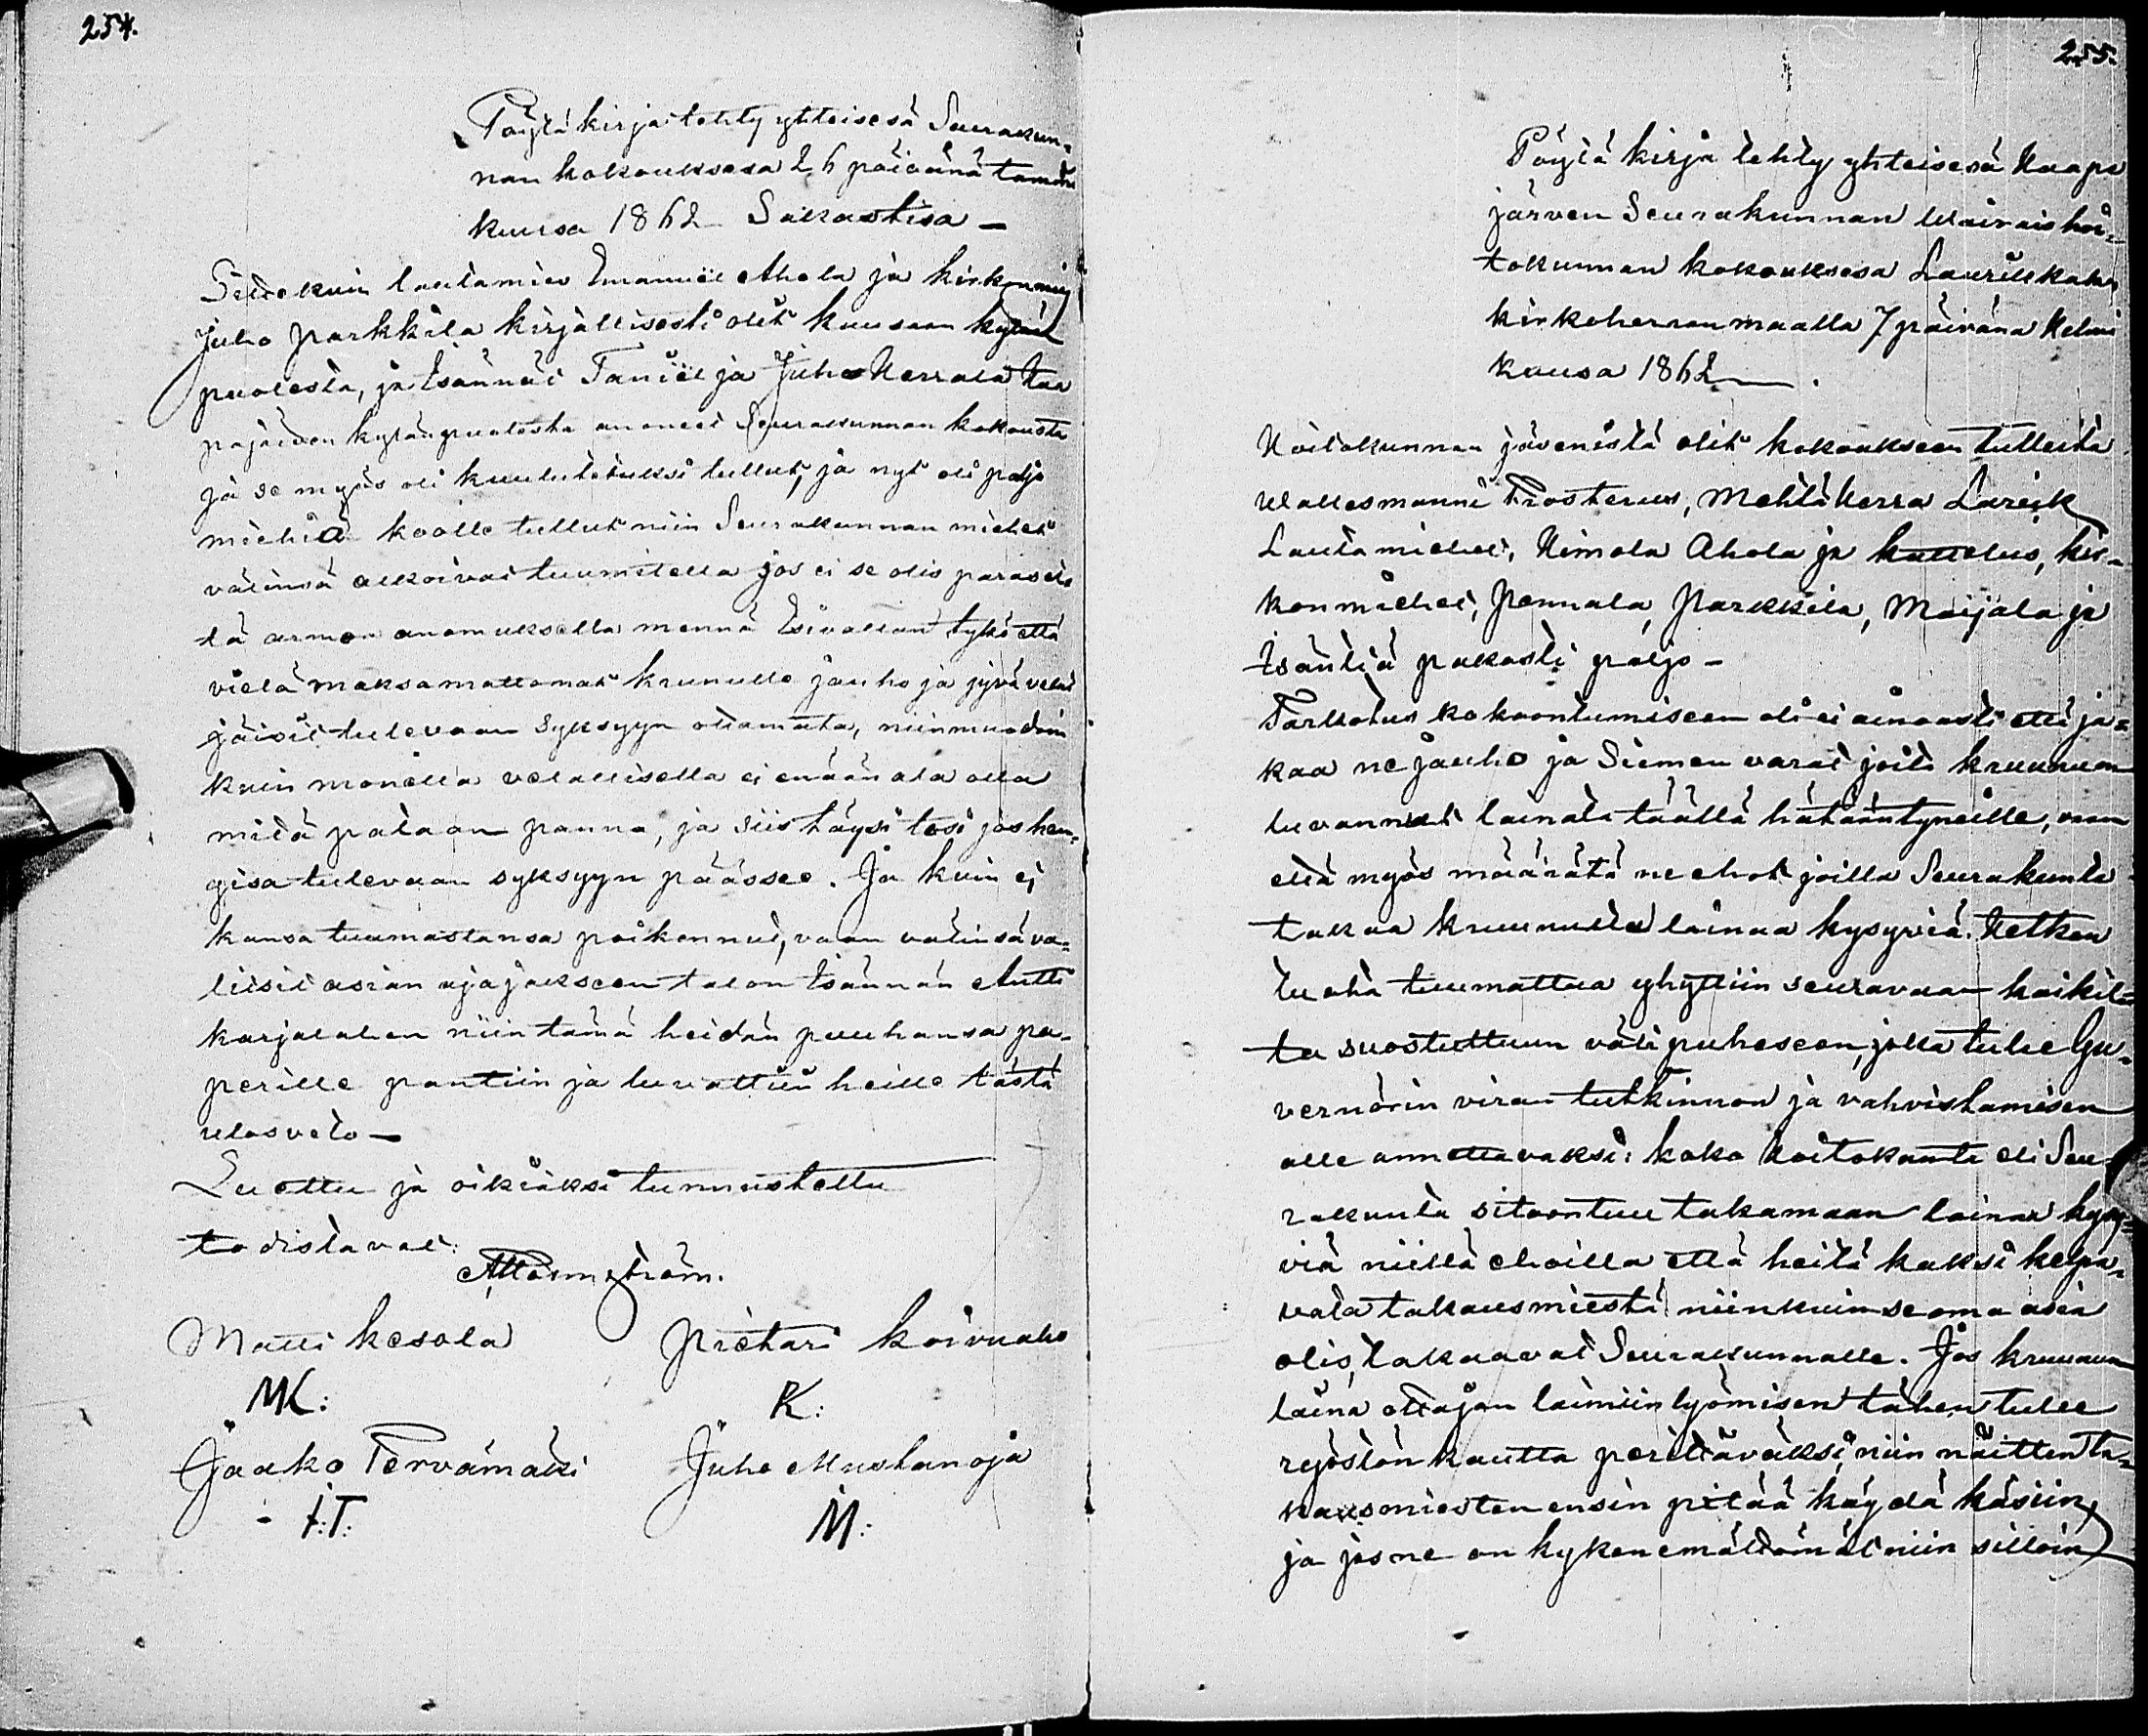 254.
Pöytä kirja tehty yhteisesä Seurakun-
nan kokouksesa 26 päivänä tammi
kuusa 1862 Sakastisa —
Siitä kuin lautamies Emanuel Ahola ja kirkonmies
Juho Parkkila kirjallisesti olit kuusaan kylän
puolesta, ja Isännät Taniel ja Juho Herrala Haa
pajärven kylänpuolesta anoneet Seurakunnan kokousta
ja se myös oli kuulutetuksi tullut, ja nyt oli paljo
miehiä koolle tullut niin Seurakunnan miehet
välinsä alkoivat tuumitella jos ei se olis paras et-
tä armon anomuksella mennä Esivallan tykö että
vielä maksamattomat kruunulle jauho ja jyvä velat
jäisit tulevaan syksyyn ottamata, niinmuodoin
kuin monella velallisella ei enään ala olla
mitä pataan panna, ja siis täysi tosi jos hen-
gisa tulevaan syksyyn päässee. Ja kuin ei
kansa tuumastansa poikennut, vaan välinsä va-
litsit asian ajajakseen talon Isännän Antti
karjalahen niin tämä heidän puuhansa pa-
perille pantiin ja luvattiin heille tästä
ulosveto —
Luettu ja oikiaksi tunnustettu
todistavat:
Malmström.
Matti kesola Pietari koivuaho
MK: K:
Jaako Tervamäki Juho Mustanoja
I:T: M:
255.
Pöytä kirja tehty yhteisesä Haapa
järven Seurakunnan Waivaishoi-
tokunnan kokouksesa
kirkoherranmaalla 7 päivänä Helmi
kuusa 1862 —.
Hoitokunnan jäsenistä olit kokoukseen tulleita
Wallesmanni Frosterus, Mehtäherra Lareik
Lautamiehet, Himola Ahola ja kattelus, kir-
konmiehet, Pennala, Parkkila, Maijala ja
Isäntiä pakosti paljo —
Tarkotus kokoontumiseen oli ei ainoasti että ja-
kaa ne jauho ja Siemen varat joita kruunun
luvannut lainata täällä hätääntyneille, vaan
että myös määrätä ne ehot joilla Seurakunta
takaa kruunulta lainaa kysyviä. Hetken
tuota tuumattua yhyttiin seuravaan kaikil-
ta suostuttuun väli puheseen, jolla tulee Gu-
vernörin viran tutkinnon ja vahvistamisen
alle annettavaksi: koko hoitokunta eli Seu-
rakunta sitoontuu takamaan lainan kysy-
viä niillä ehoilla että heitä kaksi kelpa-
vata takausmiestä niinkuin se oma asia
olis, takaavat Seurakunnalle. Jos kruunun
laina ottajan laimiin lyömisen tähen tulee
ryöstön kautta perittäväksi, niin näitten ta-
kausmiesten ensin pitää käydä käsiin,
ja jos ne on kykenemättömät niin silloin